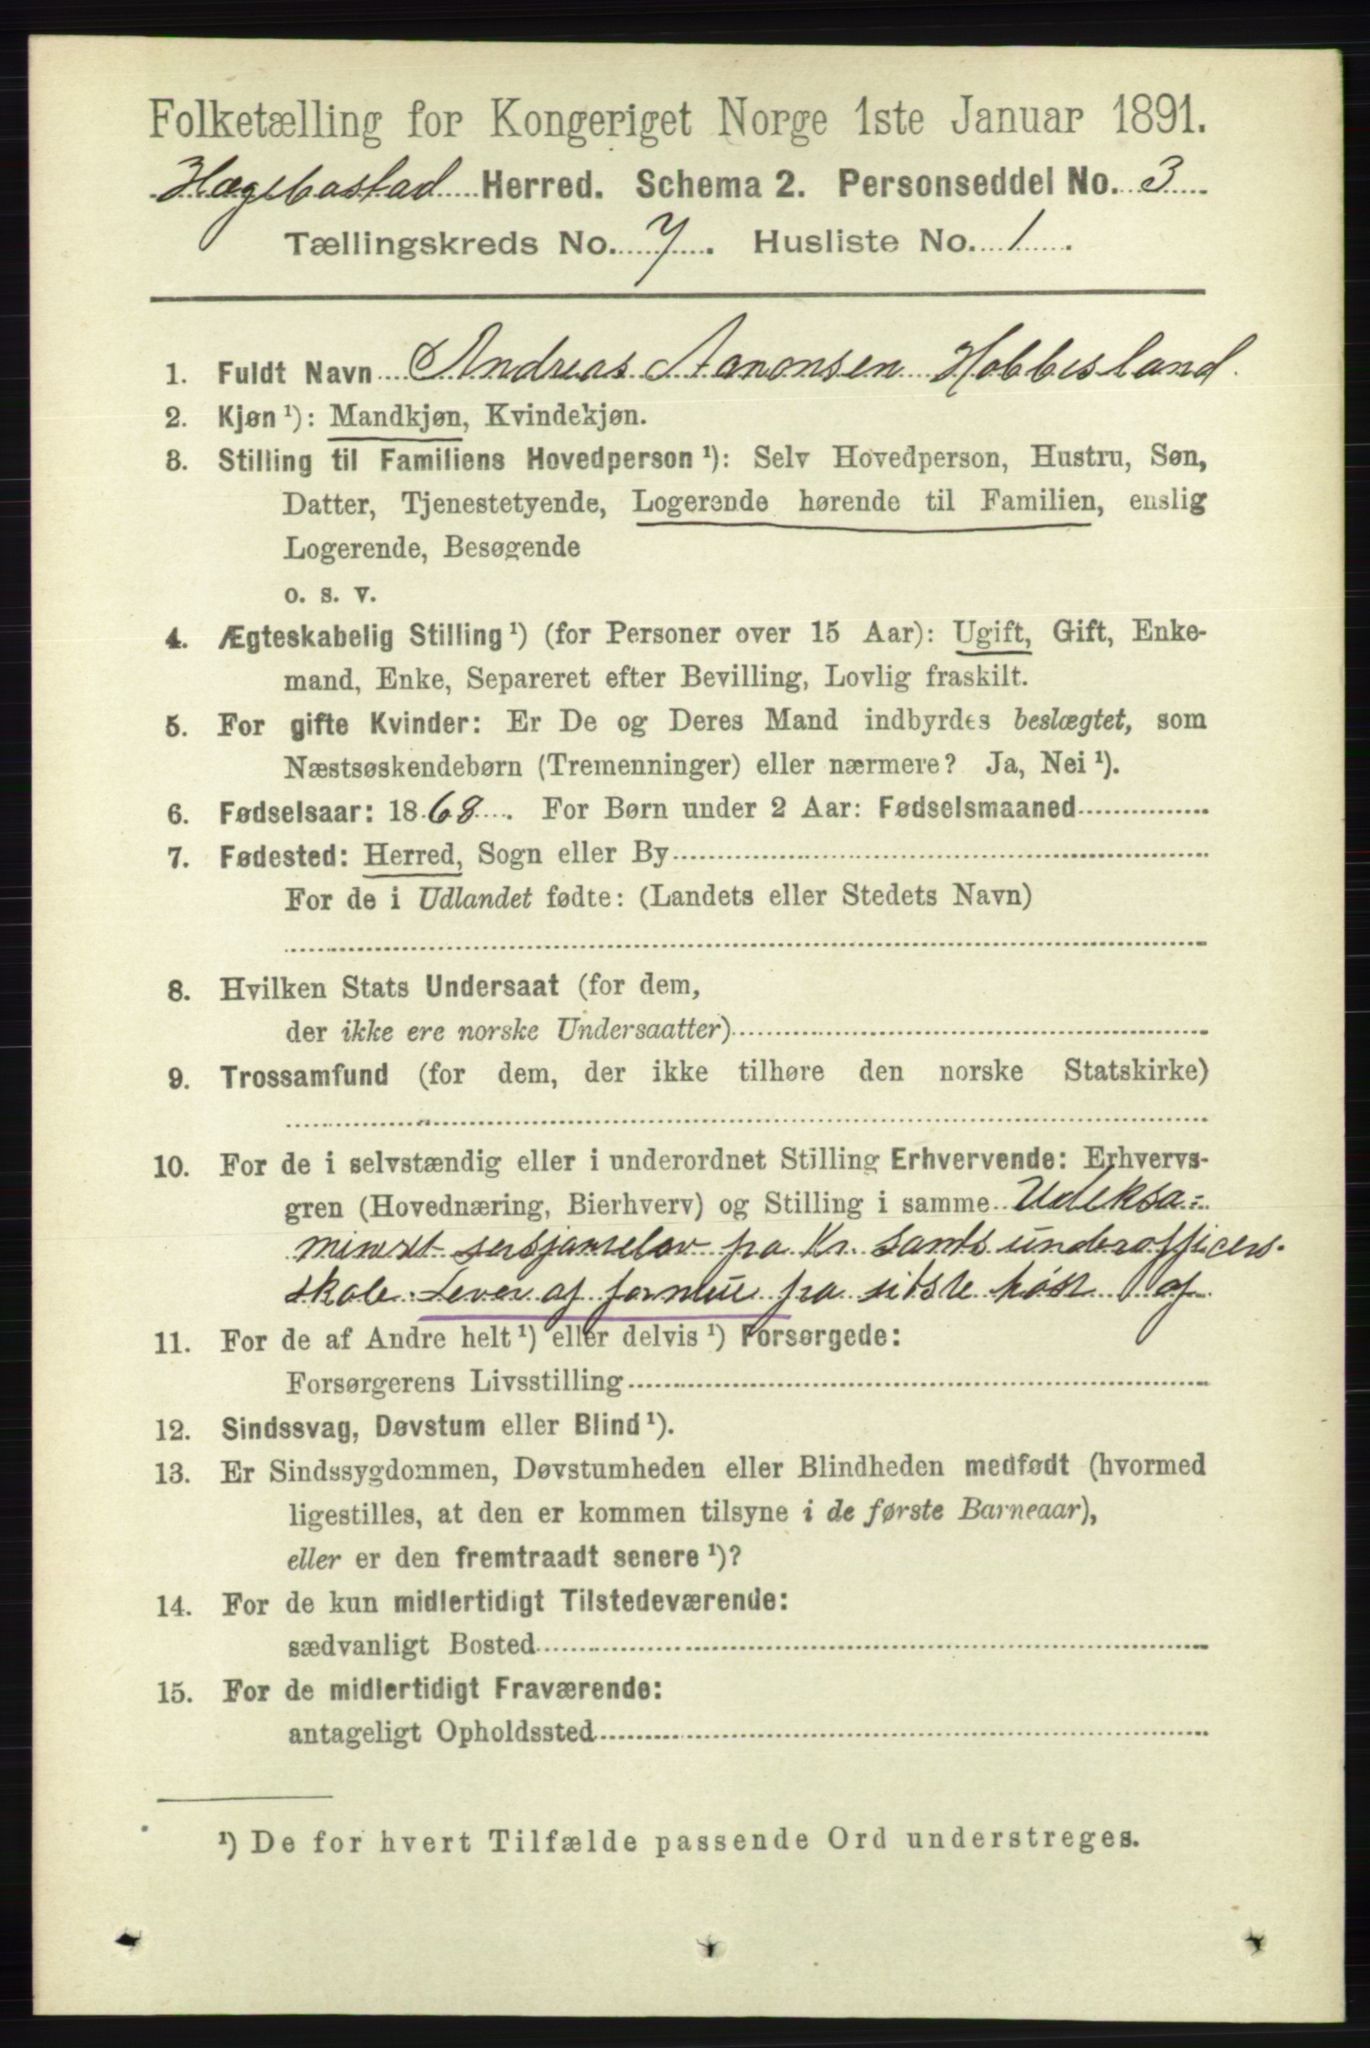 Folketælling for Kongeriget Norge 1ste Januar 1891.
Hægebostad Herred. Schema 2. Personseddel No. 3
Tællingskreds No. 7. Husliste No. 1.
1. Fuldt Navn Andreas Aanonsen Hobbesland.
2. Kjøn ¹): Mandkjøn, Kvindekjøn.
3. Stilling til Familiens Hovedperson ¹): Selv Hovedperson, Hustru, Søn,
Datter, Tjenestetyende, Logerende hørende til Familien, enslig
Logerende, Besøgende
o. s. v.
4. Ægteskabelig Stilling ¹) (for Personer over 15 Aar): Ugift, Gift, Enke-
mand, Enke, Separeret efter Bevilling, Lovlig fraskilt.
5. For gifte Kvinder: Er De og Deres Mand indbyrdes beslægtet, som
Næstsøskendebørn (Tremenninger) eller nærmere? Ja, Nei ¹).
6. Fødselsaar: 1868. For Børn under 2 Aar: Fødselsmaaned
7. Fødested: Herred, Sogn eller By
For de i Udlandet fødte: (Landets eller Stedets Navn)
8. Hvilken Stats Undersaat (for dem,
der ikke ere norske Undersaatter)
9. Trossamfund (for dem, der ikke tilhøre den norske Statskirke)
10. For de i selvstændig eller i underordnet Stilling Erhvervende: Erhvervs-
gren (Hovednæring, Bierhverv) og Stilling i samme Udeksa=
mineret fra Kr. sands underofficers
skole. Lever af formue fra sidste høst af
11. For de af Andre helt ¹) eller delvis ¹) Forsørgede:
Forsørgerens Livsstilling
12. Sindssvag, Døvstum eller Blind ¹).
13. Er Sindssygdommen, Døvstumheden eller Blindheden medfødt (hvormed
ligestilles, at den er kommen tilsyne i de første Barneaar),
eller er den fremtraadt senere ¹)?
14. For de kun midlertidigt Tilstedeværende:
sædvanligt Bosted
15. For de midlertidigt Fraværende:
antageligt Opholdssted
¹) De for hvert Tilfælde passende Ord understreges.